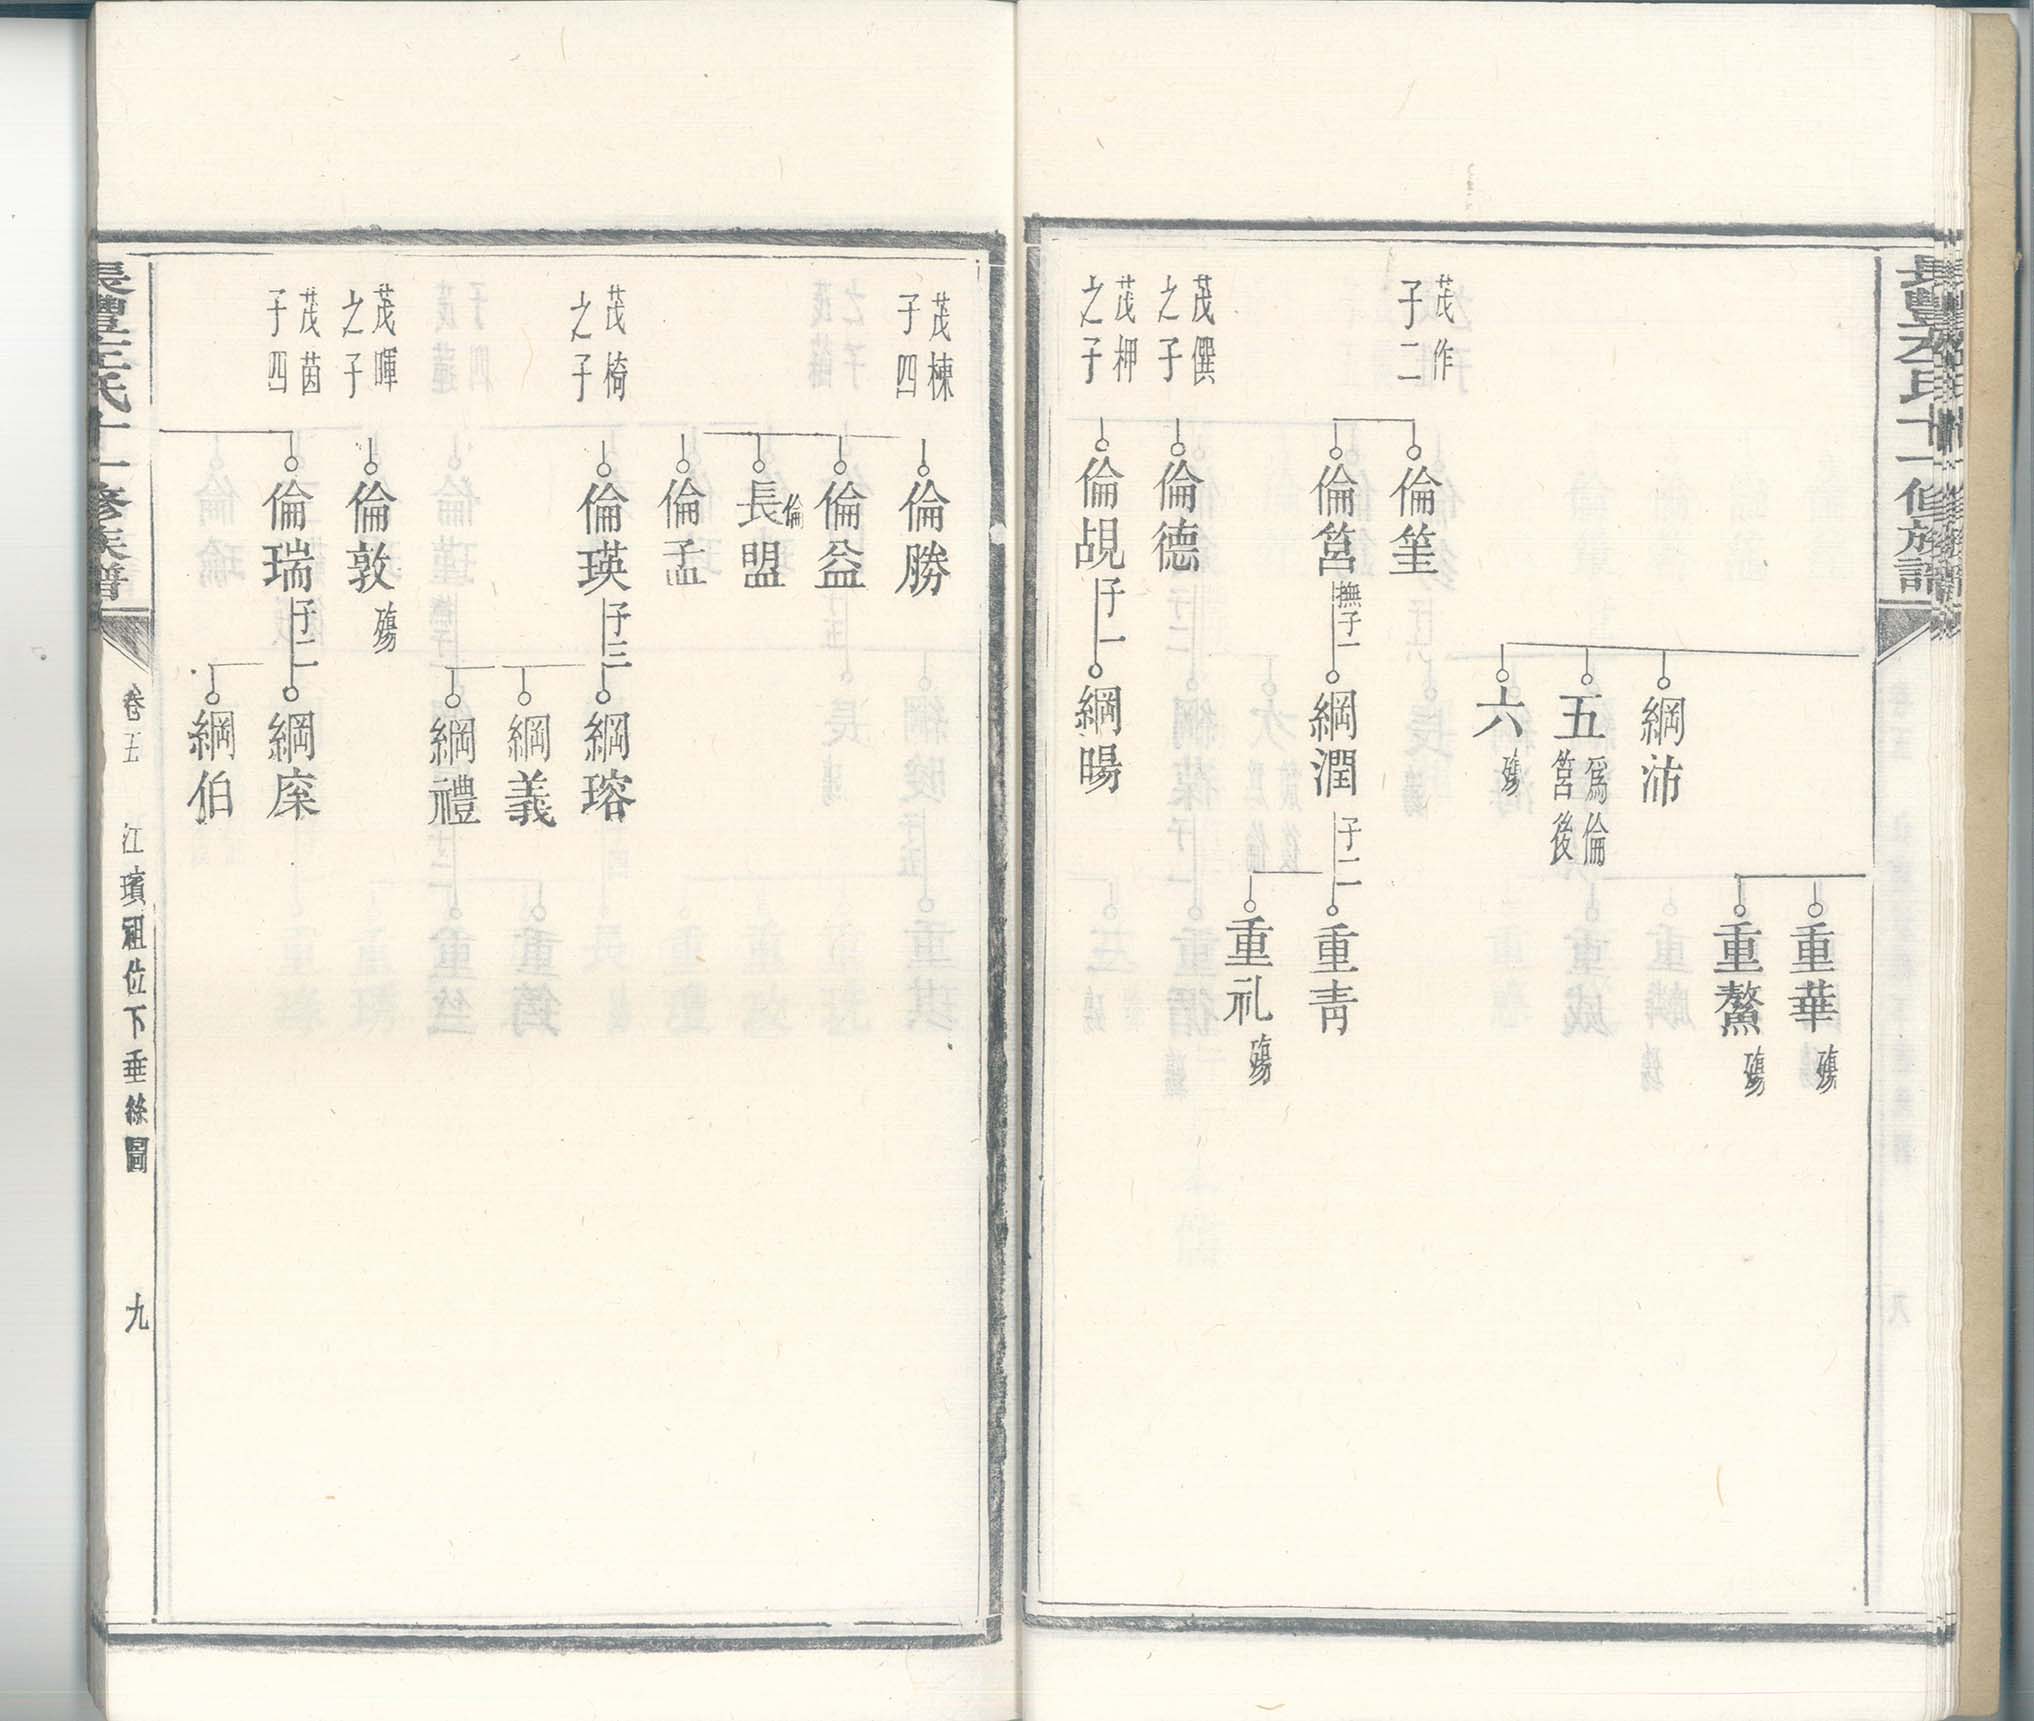 重華 殤
重鰲 殤
綱沛
五 爲倫筥後
六 殤
茂作子二
倫筀
倫筥 撫子一
綱潤 子二
重青
重礼 殤
茂僎之子
倫德
茂柙之子
倫覘 子一
綱暘
茂棟子四
倫勝
倫益
倫長盟
倫孟
茂椅之子
倫瑛 子三
綱瑢
綱義
綱禮
茂暉之子
倫敦 殤
茂茵子四
倫瑞 子二
綱庺
綱伯
卷五
江璸祖位下垂絲圖
九